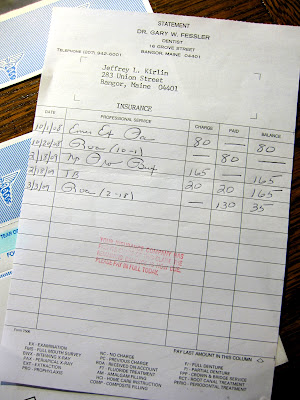 STATEMENT
DR. GARY W. FESSLER
DENTIST
16 GROVE STREET
TELEPHONE (207) 942-6001 BANGOR, MAINE 04401
Jeffrey L. Kirlin
283 Union Street
Bangor, Maine 04401
INSURANCE
DATE PROFESSIONAL SERVICE CHARGE PAID BALANCE
80 — 80
(10-1) — 80 —
165 — 165
TB 20 20 165
3/3/09 (2-18) — 130 35
YOUR INSURANCE COMPANY HAS
PLEASE PAY IN FULL TODAY.
PAY LAST AMOUNT IN THIS COLUMN
EX - EXAMINATION
FMS - FULL MOUTH SURVEY
BWX - BITEWING X-RAY
PAX - PERIAPICAL X-RAY
EXT - EXTRACTION
PRO - PROPHYLAXIS
NC - NO CHARGE
PC - PREVIOUS CHARGE
ROA - RECEIVED ON ACCOUNT
FL - FLUORIDE TREATMENT
AM - AMALGAM FILLING
HO - HOME CARE INSTRUCTION
COMP - COMPOSITE FILLING
F/ - FULL DENTURE
P/ - PARTIAL DENTURE
CR/BR - CROWN & BRIDGE SERVICE
RCT - ROOT CANAL TREATMENT
PERIO - PERIODONTAL TREATMENT